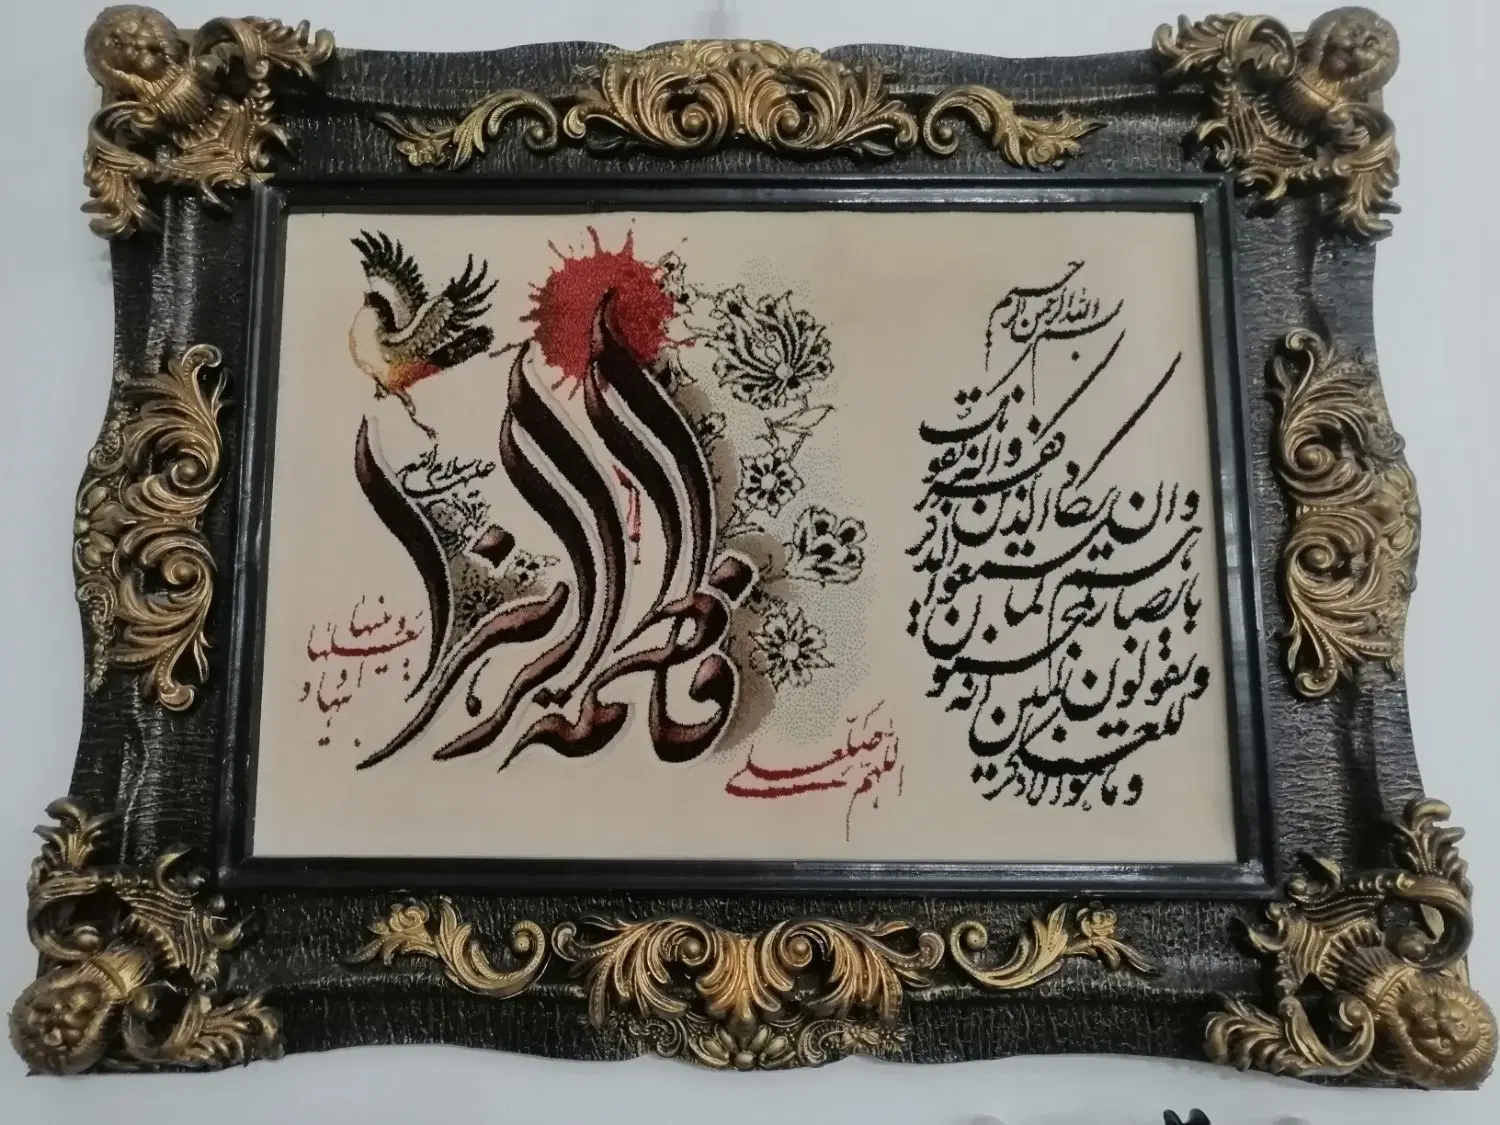 بسم الله الرحمن الرحیم
وان یکاد الذین کفروا لیزلقونک
بابصارهم لما سمعوا الذکر
ویقولون انه لمجنون
وما هو الا ذکر للعالمین
اللهم صل علی
فاطمه الزهرا
سلام الله علیها
و ابیها
و بعلها
و بنیها